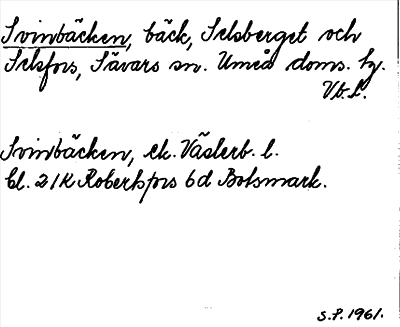 Svinbäcken, bäck, Selsberget och
Selsfors, Sävars sn. Umeå doms. hg.
Vb. L.
Svinbäcken, ek. Västerb. l.
bl. 21K Robertsfors 6d Botsmark.
S.P. 1961.